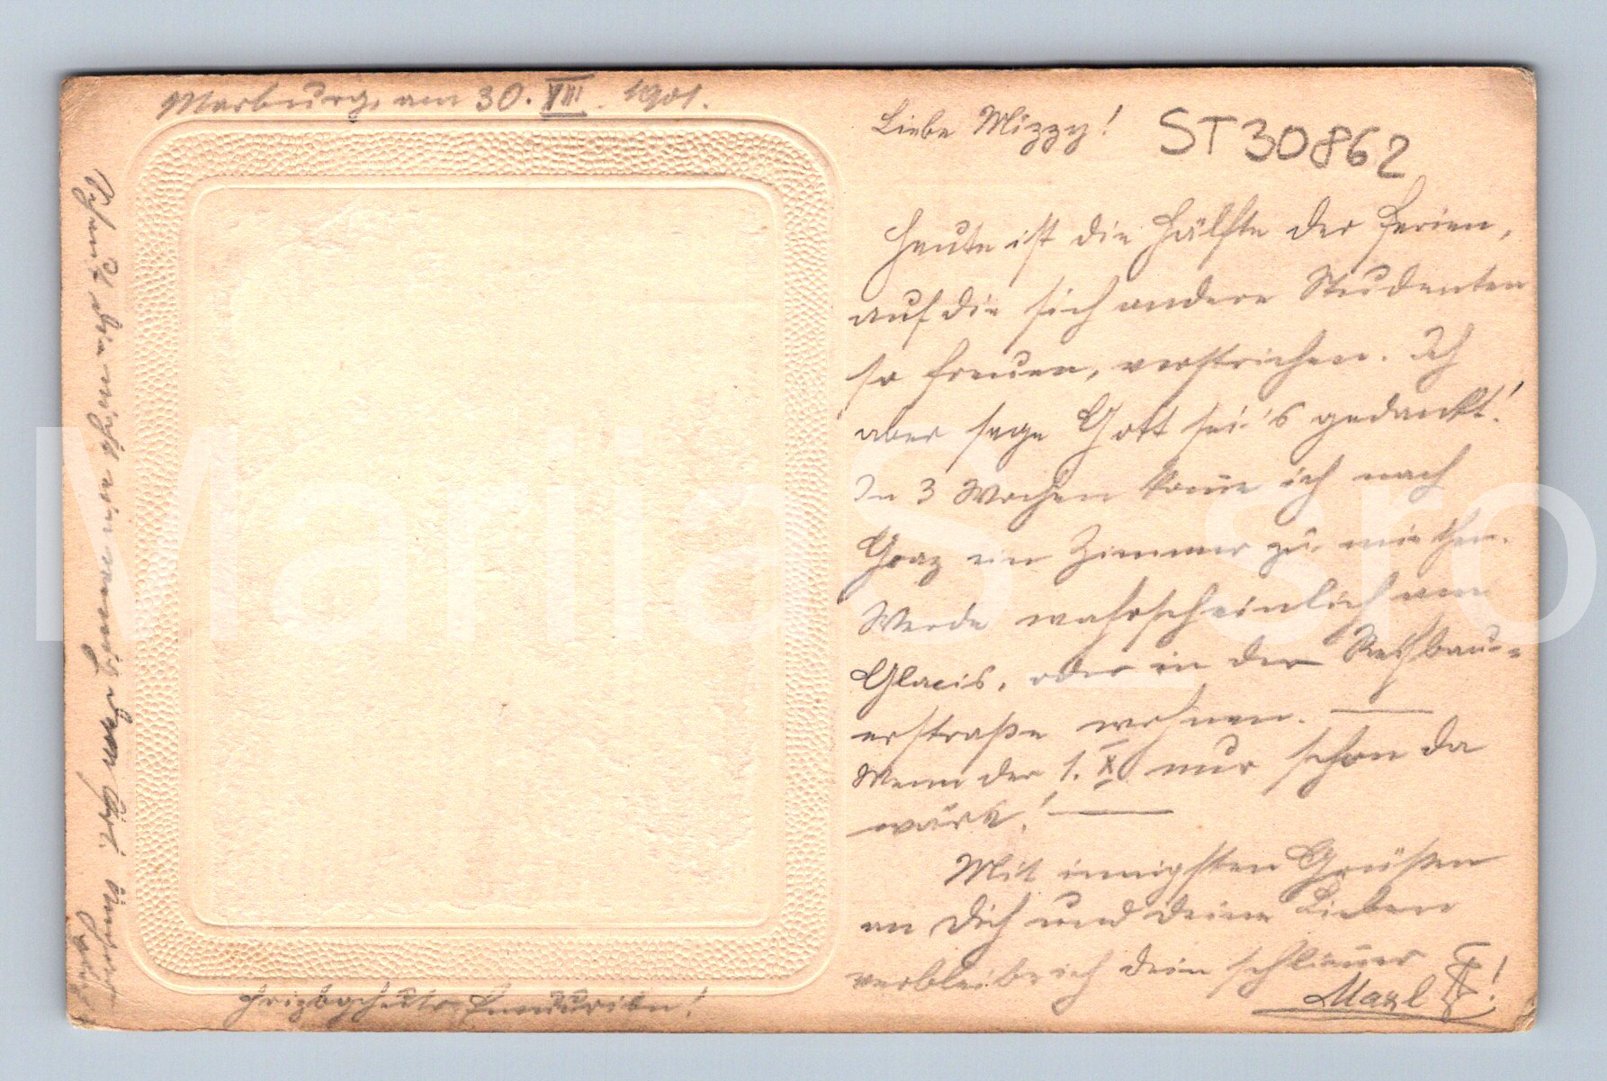 Marburg, am 30. VIII. 1901.
Liebe Mizzy!
ST30862
Heute ist die Hälfte der Ferien,
auf die sich andere Studenten
so freuen, verstrichen. Ich
aber sage Gott sei's gedankt!
In 3 Wochen kom̅e ich nach
Graz ein Zimmer zu miethen.
Werde wahrscheinlich am
Glacis, oder in der Rechbau-
erstraße wohnen. —
Wenn der 1. X. nur schon da
wäre! —
Mit innigsten Grüßen
an Dich und deine Lieben
verbleibe ich dein schlim̅er
Maxl!
MartiaS_sro